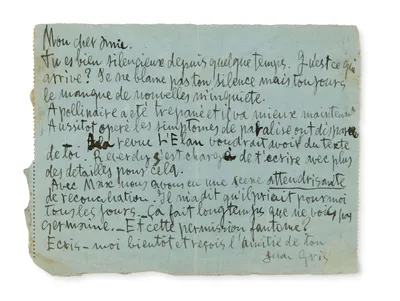 Mon cher Amie.
Tu es bien silencieux depuis quelque temps. Qu'est ce qui
arrive? Je ne blame pas ton silence mais toujours
le manque de nouvelles m'inquiete.
Apollinaire a eté trépané et il va mieux maintenant
Aussitot operé les simptomes de paralisie ont disparu
La revue L'Elan voudrait avoir du texte
de toi. Reverdy s'est chargé de t'ecrire avec plus
des detailles pour cela.
Avec Max nous avons eu une scene attendrisante
de reconciliation. Il m'a dit qu'il priait pour moi
tous les jours. Ça fait longtemps que ne vois pas
Germaine. Et cette permission fantome?
Ecris-moi bientôt et reçois l'amitié de ton
Juan Gris